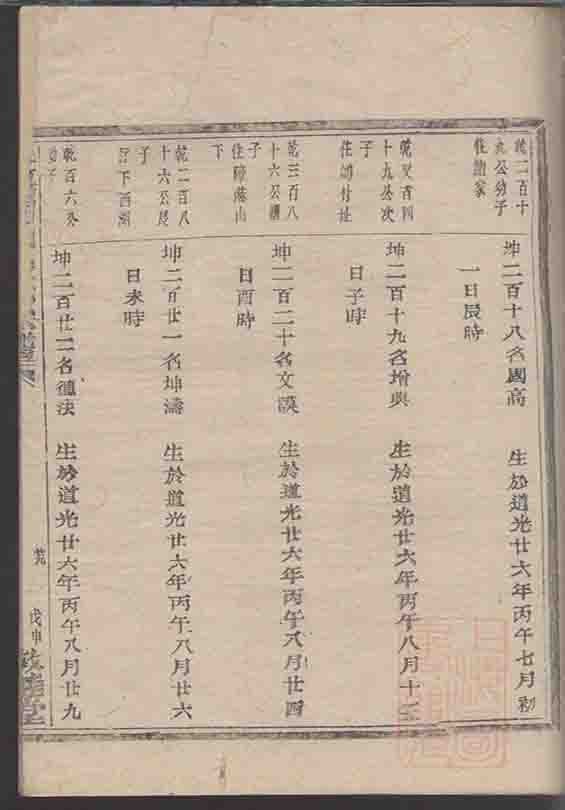 乾二百十
九公幼子
住諸家
坤二百十八名國高 生於道光廿六年丙午七月初
一日辰時
乾又百四
十九公次
子
坤二百十九名增興 生於道光廿六年丙午八月十二
日子時
乾三百八
十六公
子
住障落山
下
坤二百二十名文謨 生於道光廿六年丙午八月廿四
日酉時
乾二百八
十六公長
子
坤二百廿一名坤濤 生於道光廿六年丙午八月廿六
日未時
乾百六公
坤二百廿二名德法 生於道光廿六年丙午八月廿九
戊申